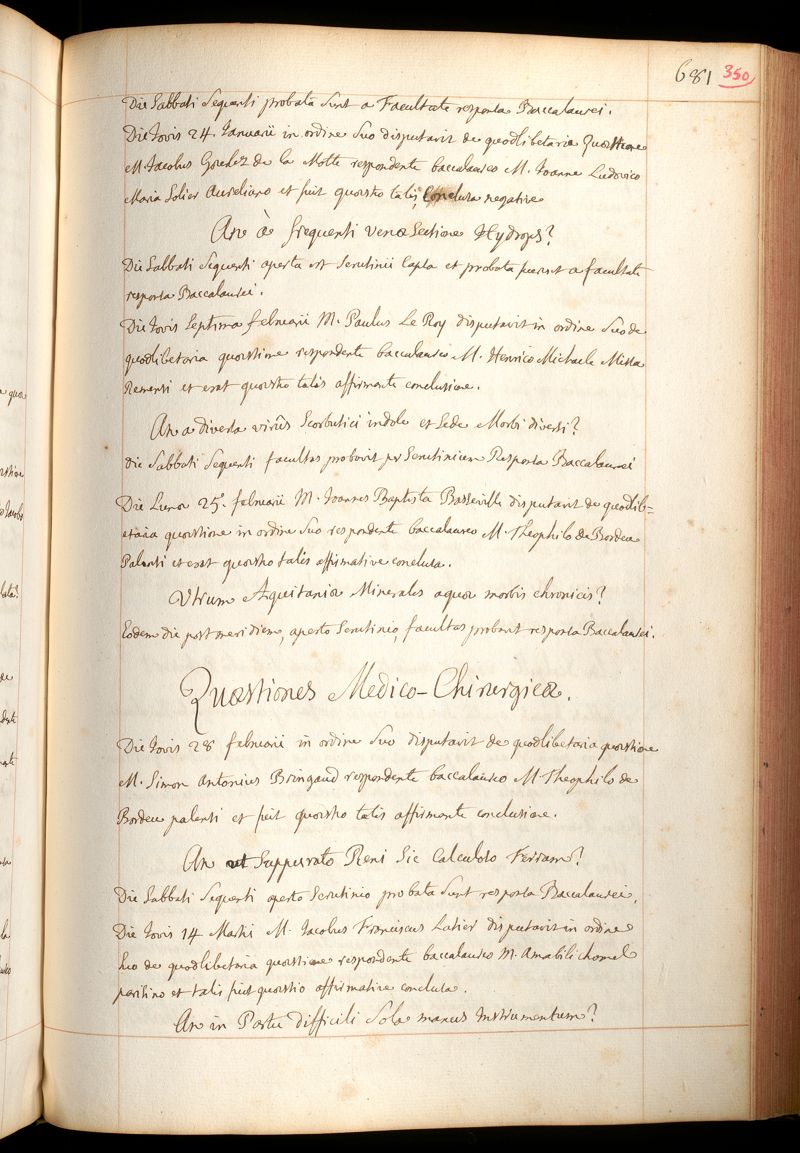 681 350
Die Sabbati Sequenti probata sunt a Facultate responsa Baccalaurei.
Die Jovis 24 Januarii in ordine suo disputavit de quodlibetaria Quæstione
M. Jacobus de la Motte respondente baccalaureo M. Joanne Ludovico
Maria Solier Aureliano et fuit quæstio talis, Conclusa negative
An à frequenti venæ Sectione Hydrops?
Die Sabbati Sequenti aperta est Scrutinii Capsa et probata fuerunt a facultate
responsa Baccalaurei.
Die Jovis Septima februarii M. Paulus Le Roy disputavit in ordine suo de
quodlibetaria quæstione respondente baccalaureo M. Henrico Michaele Missa
Remensi et erat quæstio talis affirmante conclusione.
An a diversa virûs Scorbutici indole et Sede Morbi diversi?
Die Sabbati Sequenti facultas probavit per Scrutinium Responsa Baccalaurei
Die Lunæ 25ª. februarii M. Joannes Baptista Basseville disputavit de quodlib=
etaria quæstione in ordine suo respondente baccalaureo M. Theophilo de Bordeu
Palensi et erat quæstio talis affirmative conclusa.
Utrum Aquitaniæ Minerales aquæ morbis chronicis?
Eodem die post meridiem, aperto Scrutinio, facultas probavit responsa Baccalaurei.
Quæstiones Medico-Chirurgicæ.
Die Jovis 28 februarii in ordine suo disputavit de quodlibetaria quæstione
M. Simon Antonius Bringaud respondente baccalaureo M. Theophilo de
Bordeu palensi et fuit quæstio talis affirmante conclusione.
An ut Suppurato Reni Sic Calculoso Ferrum?
Die Sabbati Sequenti aperto Scrutinio probata sunt responsa Baccalaurei.
Die Jovis 14 Martii M. Jacobus Franciscus Latier disputavit in ordine
suo de quodlibetaria quæstione respondente baccalaureo M. Amabili chomel
parisino et talis fuit quæstio affirmative conclusa.
An in Partu difficili Sola manus Instrumentum?